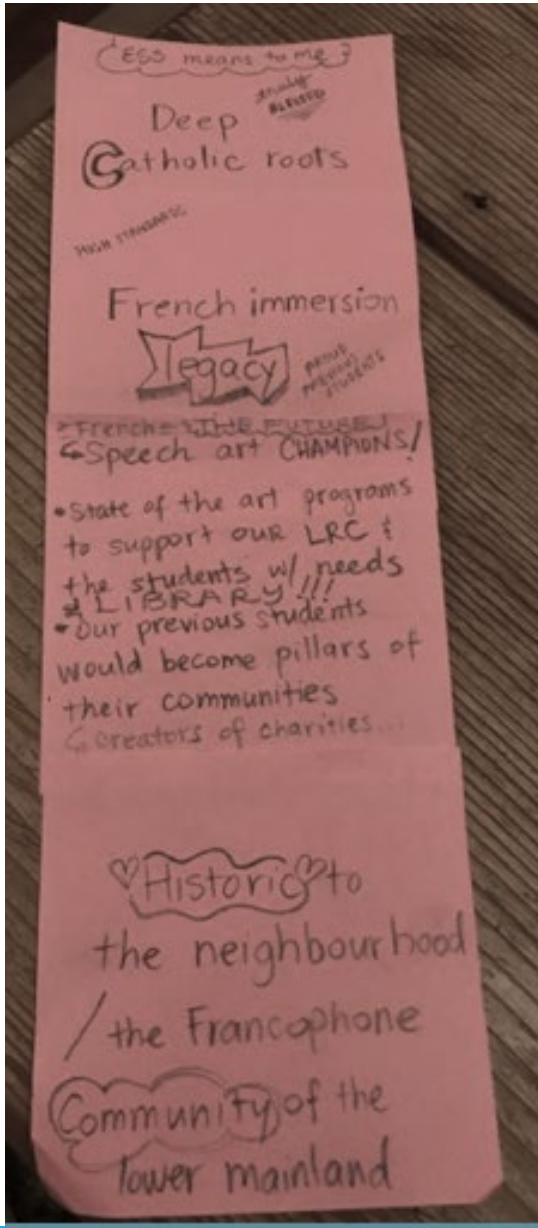 ESS means to me
truly
BLESSED
Deep
Catholic roots
HIGH STANDARDS
French immersion
legacy
PROUD
PREVIOUS
STUDENTS
French = THE FUTURE!
↳ Speech art CHAMPIONS!
• State of the art programs
to support OUR LRC &
the students w/ needs
& LIBRARY!!!
• Our previous students
would become pillars of
their communities
↳ creators of charities...
♡Historic♡ to
the neighbourhood
/ the Francophone
Community of the
lower mainland